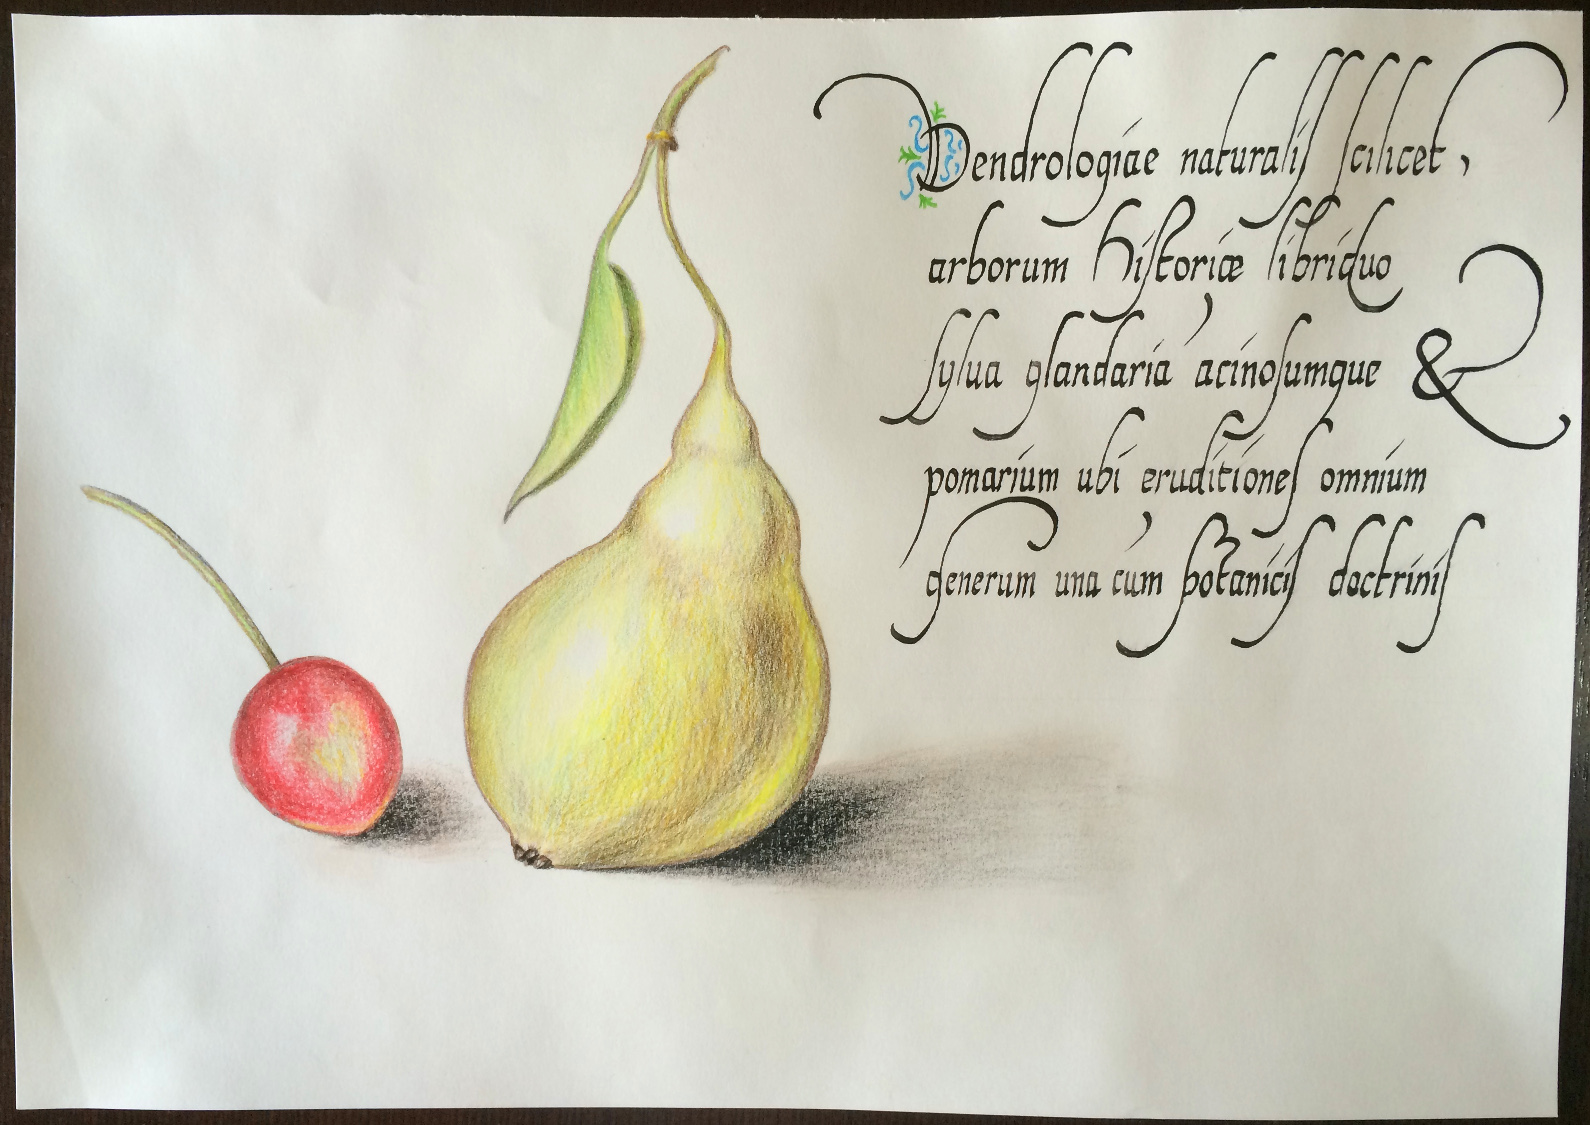 Dendrologiae naturaliſ ſcilicet,
arborum hiſtoriæ libriduo
ſylua glandaria acinoſumque &
pomarium ubi eruditioneſ omnium
generum una cum botaniciſ doctriniſ